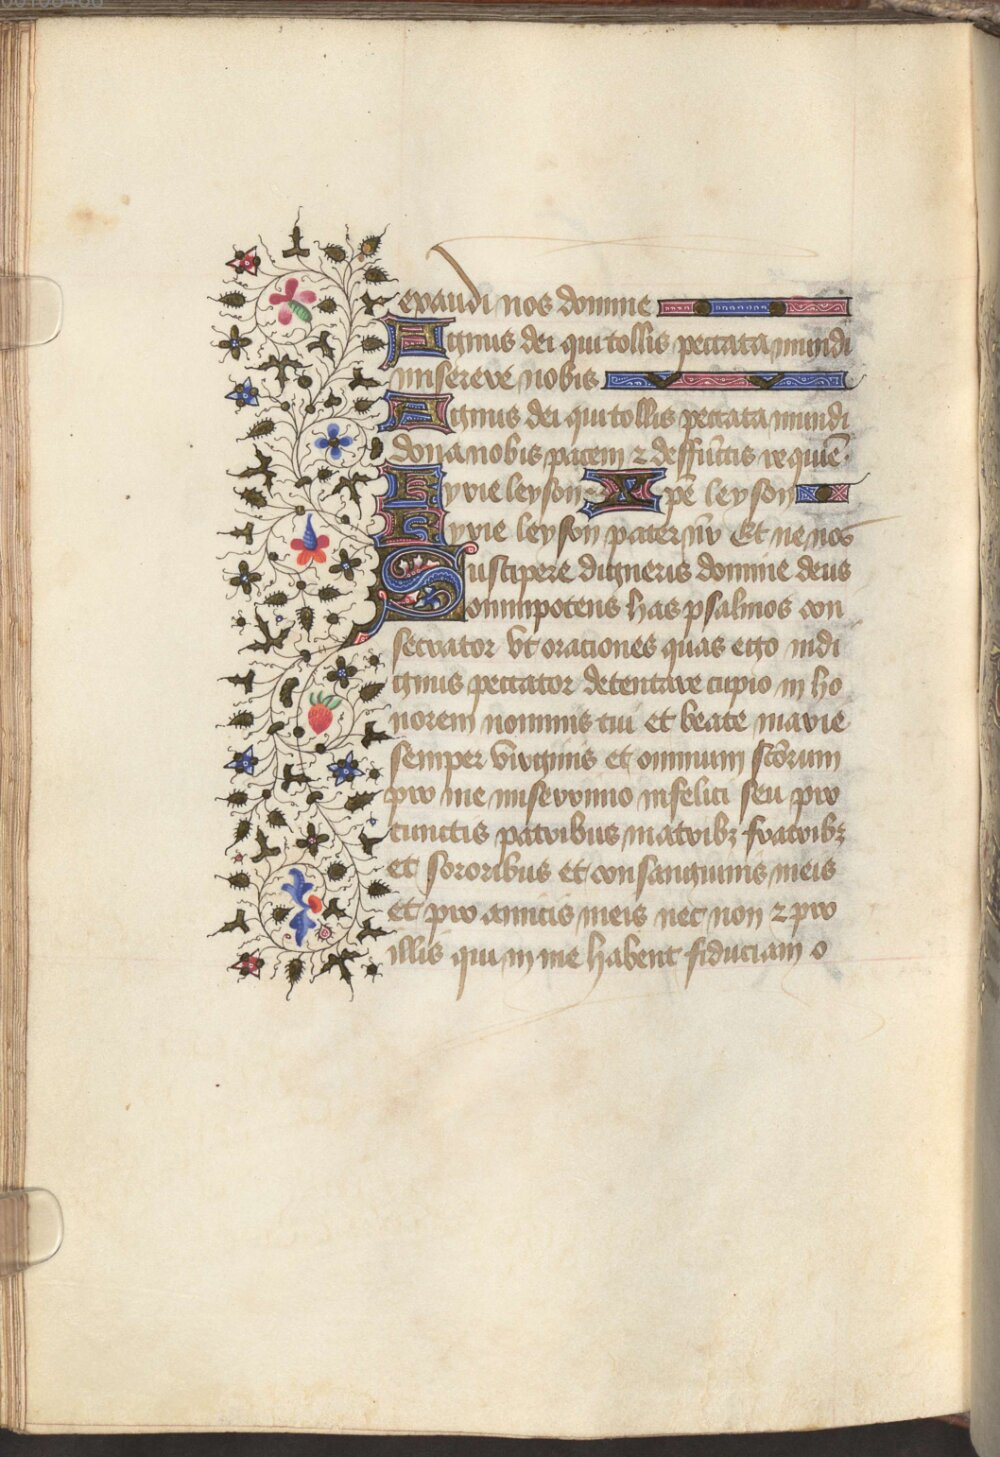 exaudi nos domine
Agnus dei qui tollis peccata mundi
miserere nobis
Agnus dei qui tollis peccata mundi
dona nobis pacem ⁊ deffūctis requiē·
Kyrie leyson Xp̄e leyson
Kyrie leyson pater nr̄ Et ne nos
Suscipere digneris domine deus
omnipotens has psalmos con
secrator ut orationes quas ego indi
gnus peccator decentare cupio in ho
norem nominis tui et beate marie
semper virginis et omnium sc̄orum
pro me miserrimo infelici seu pro
cunctis patribus matribꝫ fratribꝫ
et sororibus et consanguinis meis
et pro amicis meis nec non ⁊ pro
illis qui in me habent fiduciam o